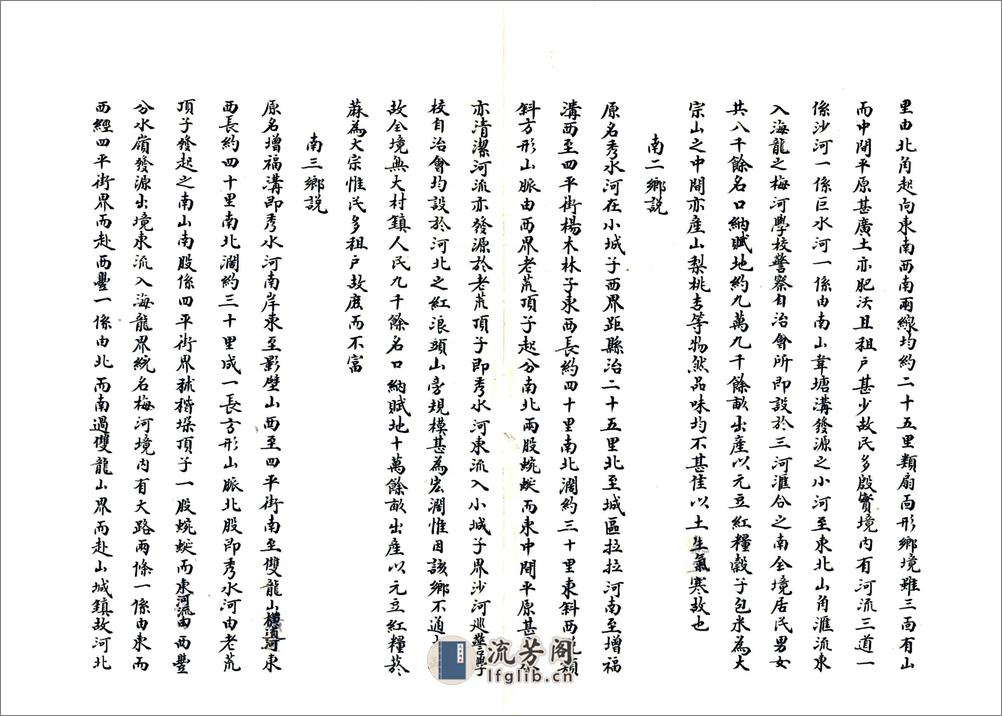 里由北角起向東南西南兩線均約二十五里類扇面形鄉境雖三面有山
而中間平原甚廣土亦肥沃且租戶甚少故民多殷實境内有河流三道一
係沙河一係巨水河一係由南山葦塘溝發源之小河至東北山角滙流東
入海龍之梅河學校警察自治會所即設於三河滙合之南全境居民男女
共八千餘名口納賦地約九萬九千餘畝出產以元豆紅糧穀子包米為大
宗山之中間亦產山梨桃李等物然品味均不甚佳以土生氣寒故也
南二鄉説
原名秀水河在小城子西界距縣治二十五里北至城區拉拉河南至增福
溝西至四平街楊木林子東西長約四十里南北濶約三十里東斜西
斜方形山脈由西界老荒頂子起分南北兩股蜿蜒而東中間平原甚
亦清潔河流亦發源於老荒頂子即秀水河東流入小城子界沙河巡警學
校自治會均設於河北之紅浪頭山旁規模甚為宏濶惟因該鄉不通
故全境無大村鎮人民九千餘名口納賦地十萬餘畝出產以元豆紅糧菸
蔴為大宗惟民多租戶故庶而不富
南三鄉説
原名增福溝即秀水河南岸東至影壁山西至四平街南至雙龍山橫道河東
西長約四十里南北濶約三十里成一長方形山脈北股即秀水河由老荒
頂子發起之南山南股係四平街界秫稭垛頂子一股蜿蜒而東河流由西豐
分水嶺發源出境東流入海龍界統名梅河境内有大路兩條一係由東而
西經四平街界而赴西豐一係由北而南過雙龍山界而赴山城鎮故河北
流芳阁
lfglib.cn